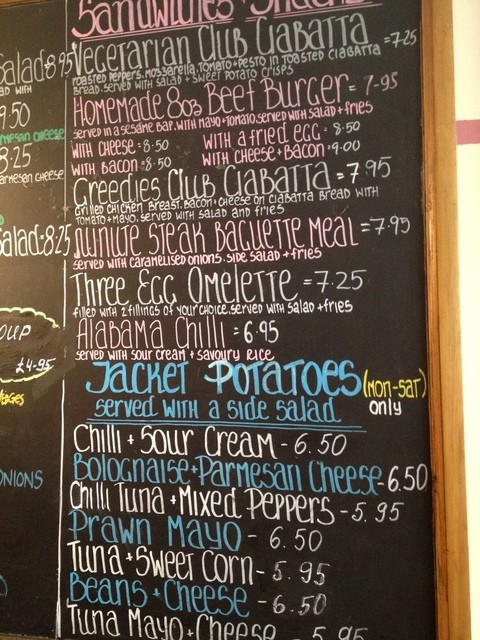 Sandwiches + Snacks
Vegetarian Club Ciabatta = 7.25
roasted peppers, mozzarella, tomato + pesto in toasted ciabatta
bread. served with salad + sweet potato crisps
Homemade 8oz Beef Burger = 7-95
served in a sesame bap. with mayo + tomato. served with salad + fries
with cheese = 8.50 with a fried egg = 8.50
with bacon = 8.50 with cheese + bacon = 9.00
Greedies Club Ciabatta = 7.95
grilled chicken breast. bacon + cheese on ciabatta bread with
tomato + mayo. served with salad and fries
Minute Steak Baguette Meal = 7.95
served with caramelised onions. side salad + fries
Three Egg Omelette = 7.25
filled with 2 fillings of your choice. served with salad + fries
Alabama Chilli = 6.95
served with sour cream + savoury rice
Jacket Potatoes (mon-sat)
served with a side salad only
Chilli + Sour Cream - 6.50
Bolognaise + Parmesan Cheese - 6.50
Chilli Tuna + Mixed Peppers - 5.95
Prawn Mayo - 6.50
Tuna + Sweet Corn - 5.95
Beans + Cheese - 6.50
Tuna Mayo + Cheese 5.95
Salad = 8.95
with
9.50
cheese
8.25
Parmesan cheese
Salad = 8.25
oup
£4.95
onions